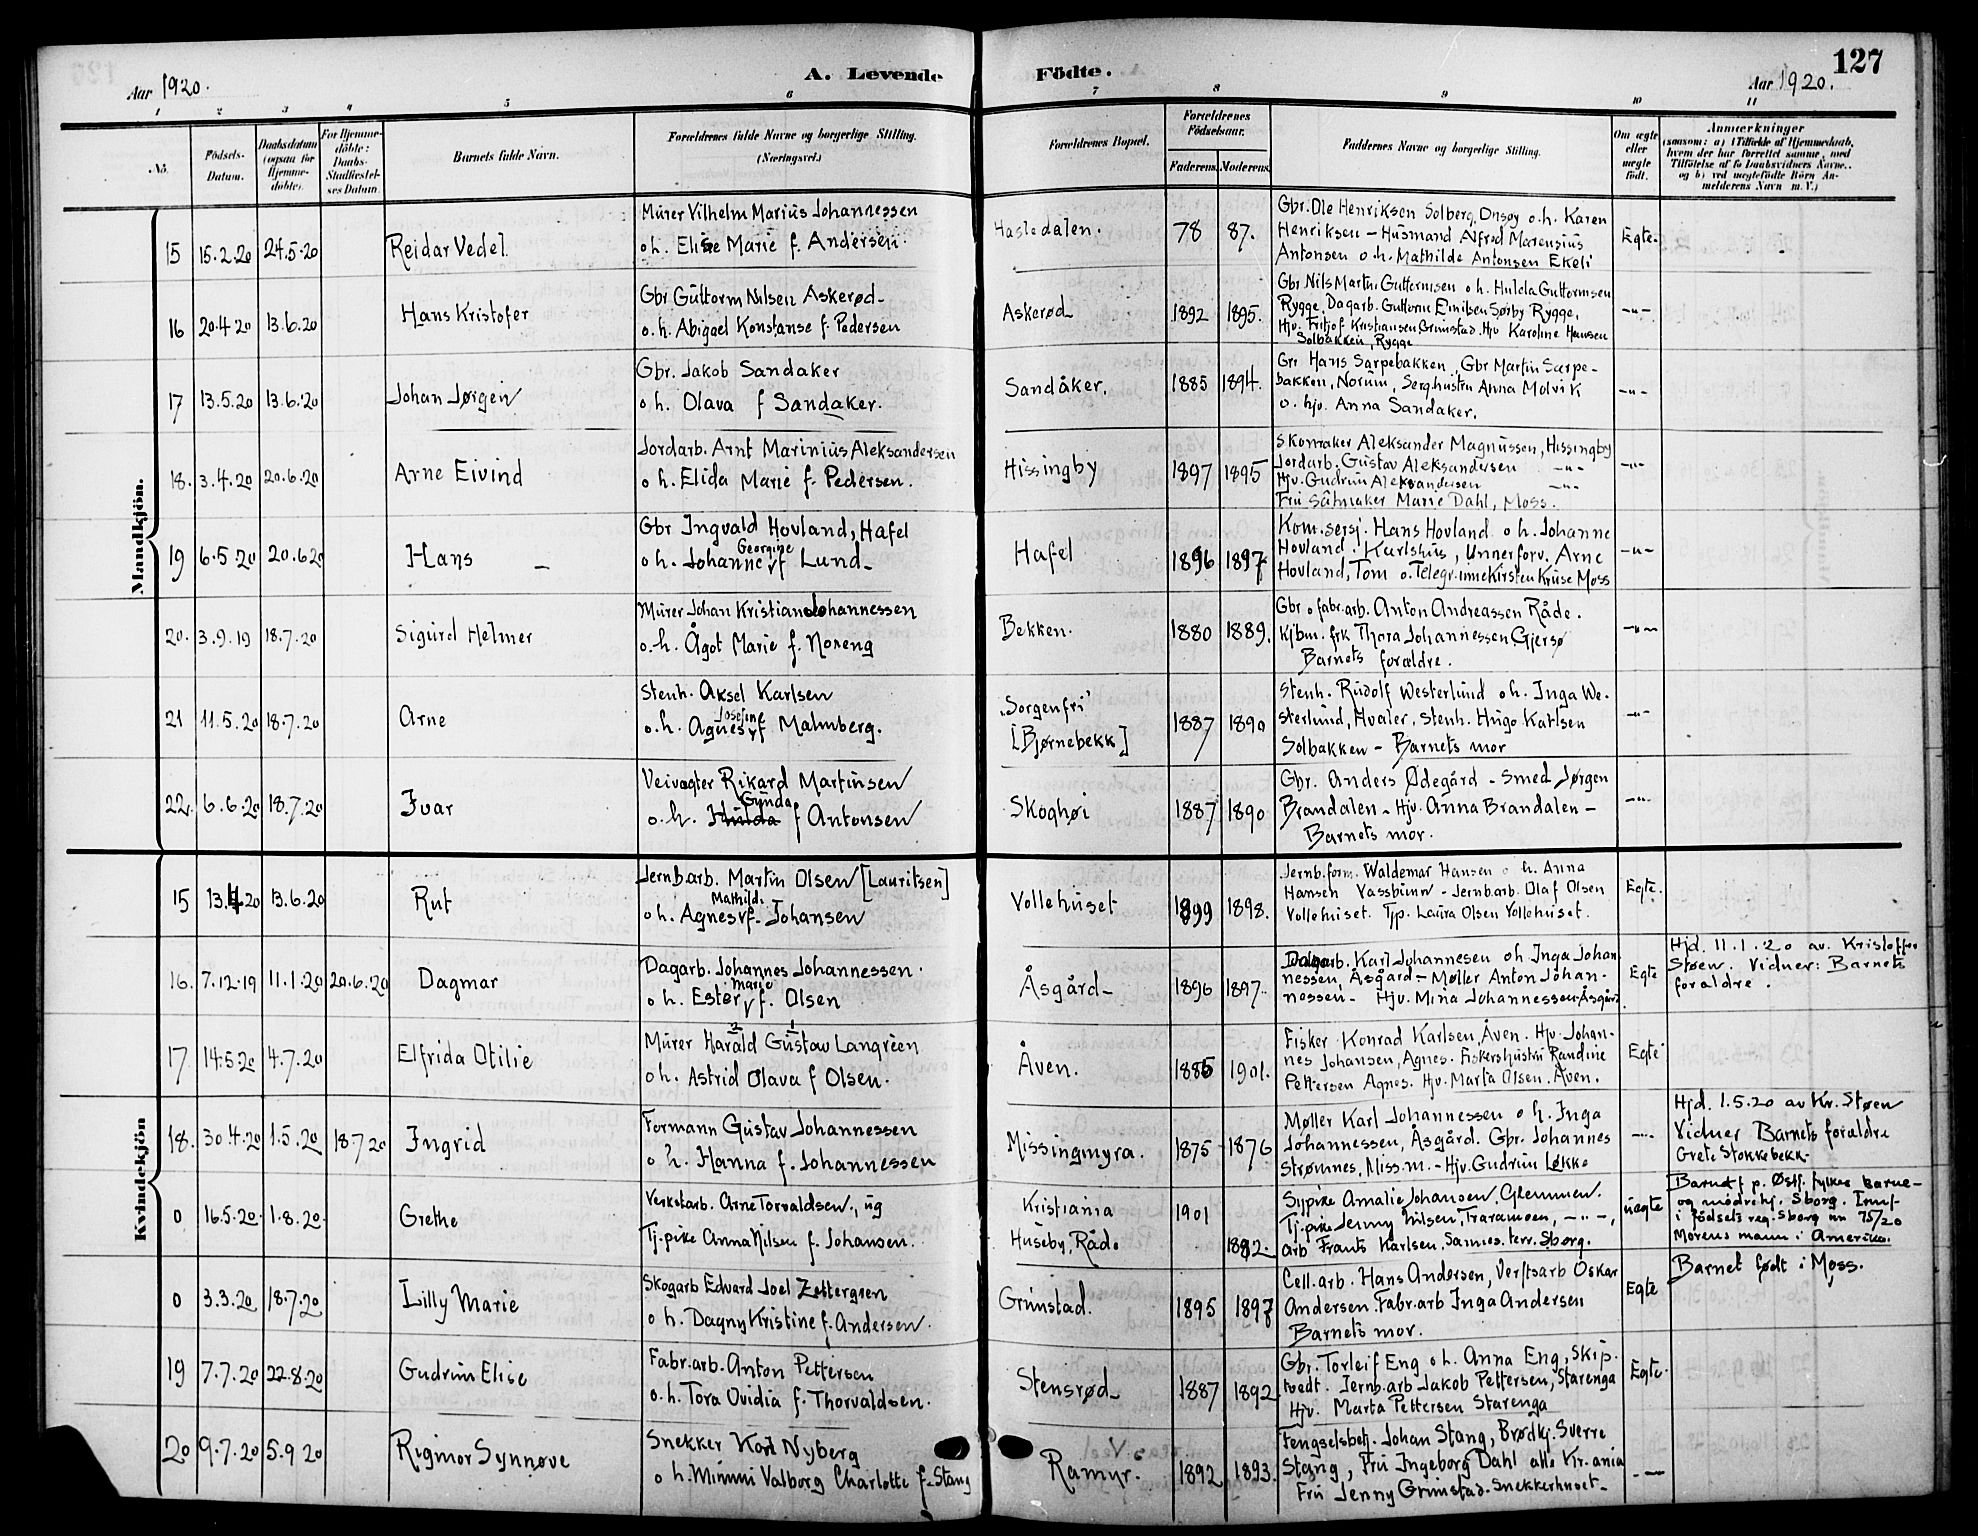 127
Aar 1920.
A. Levende Födte.
Aar 1920.
1 2 3 4 5 6 7 8 9 10 11
No. Födsels-Datum. Daabsdatum (ogsaa for Hjemme-döbte). For Hjemme-döbte: Daabs-Stadfæstel-ses Datum. Barnets fulde Navn. Forældrenes fulde Navne og borgerlige Stilling. (Næringsvei.) Forældrenes Bopæl. Forældrenes Födselsaar. Faderens. Moderens. Faddernes Navne og borgerlige Stilling. Om ægte eller uægte födt. Anmærkninger (saasom: a) i Tilfælde af Hjemmedaab, hvem der har forrettet samme, med Tilföielse af to Daabsvidners Navne.. og b) ved uægtefödte Börn An-melderens Navn m. V.)
Mandkjön.
15 15.2.20 24.5.20 Reidar Vedel
Murer Vilhelm Marius Johannessen
o h. Elise Marie f. Andersen.
Hasledalen. 78 87.
Gbr. Ole Henriksen Solberg, Onsøy o.h. Karen
Henriksen - Husmand Alfred Marensius
Antonsen o.h. Mathilde Antonsen Ekeli
Egte.
16 20.4 20 13.6.20 Hans Kristofer
Gbr Guttorm Nilsen Askerød
o.h. Abigael Konstanse f. Pedersen
Askerød 1892 1895.
Gbr Nils Martin Guttormsen o h. Hulda Guttormsen
Rygge. Dagarb. Guttorm Emilsen Sørby Rygge.
Hjv. Fritjof Kristiansen Grimstad. Hjv Karoline Hansen
Solbakken, Rygge
-"-
17 13.5.20 13.6.20 Johan Jørgen
Gbr. Jakob Sandaker
o h. Olava f Sandaker.
Sandåker. 1885 1894.
Gbr Hans Sarpebakken, Gbr Martin Sarpe-
bakken, Norum, Serg.hustru Anna Molvik
o. hjv. Anna Sandaker.
-"-
18. 3.4.20 20.6.20 Arne Eivind
Jordarb. Arnt Marinius Aleksandersen
o h. Elida Marie f. Pedersen.
Hissingby 1897 1895
Skomaker Aleksander Magnussen, Hissingby
Jordarb. Gustav Aleksandersen -"-
Hjv. Gudrun Aleksandersen -"-
Fru Salmaker Marie Dahl, Moss.
-"-
19 6.5.20 20.6 20 Hans
Gbr Ingvald Hovland, Hafel
Georgine
o h. Johanne f Lund
Hafel 1896 1897
Kom.sersj. Hans Hovland o h. Johanne
Hovland. Karlshus, Unnerforv. Arne
Hovland, Tom o. Telegr.inne Kirsten Kruse Moss
-"-
20. 3.9.19 18.7.20 Sigurd Helmer
Murer Johan Kristian Johannessen
o.h. Ågot Marie f. Noreng
Bekken. 1880 1889.
Gbr o fabr.arb. Anton Andreassen Råde.
Kjbm. frk Thora Johannessen Gjersø
Barnets foreldre.
-"-
21 11.5.20 18.7.20 Arne
Stenh. Aksel Karlsen
Josefine
o.h. Agnes f Malmberg.
"Sorgenfri"
[Bjørnebekk] 1887 1890
Stenh. Rudolf Westerlund o h. Inga We-
sterlund, Hvaler, Stenh. Hugo Karlsen
Solbakken - Barnets mor
-"-
22. 6.6.20 18.7.20 Ivar
Veivogter Rikard Martinsen
Gunda
o.h. Hulda f Antonsen
Skoghøi 1887 1890
Gbr. Anders Ødegård - Smed Jørgen
Brandalen - Hjv. Anna Brandalen -
Barnets mor.
-"-
Kvindekjön
15 13.4.20 13.6.20 Rut
Jernb.arb. Martin Olsen [Lauritsen]
Mathilde
o h. Agnes f. Johansen
Vollehuset 1899 1898.
Jernb.form. Waldemar Hansen o h. Anna
Hansen Vassbunn - Jernb.arb. Olaf Olsen
Vollehuset. Tjp. Laura Olsen Vollehuset.
Egte.
16. 7.12.19 11.1.20 20.6.20 Dagmar
Dagarb. Johannes Johannessen.
Marie
o h. Ester f. Olsen
Åsgård 1896 1897.
Dagarb. Karl Johannesen o h Inga Johan
nessen, Åsgård - Møller Anton Johan-
nessen - Hjv. Mina Johannessen Åsgård
Egte
Hjd. 11.1.20 av. Kristoffer
Støen. Vidner: Barnets
foreldre.
17 14.5.20 4.7.20 Elfrida Otilie
2 1
Murer Harald Gustav Langreen
o h. Astrid Olava f Olsen.
Åven. 1885 1901.
Fisker Konrad Karlsen, Åven. Hjv Johan-
nes Johansen, Agnes. Fiskershustru Randine
Pettersen Agnes. Hjv. Marta Olsen. Åven.
Egte
18. 30.4.20 1.5.20 18.7 20 Ingrid
Formann Gustav Johannessen
o h. Hanna f. Johannessen
Missingmyra. 1875 1876
Møller Karl Johannessen o h. Inga
Johannessen, Åsgård. Gbr. Johannes
Strømnes, Miss.m. - Hjv. Gudrun Løkke
-"-
Hjd. 1.5.20 av Kr. Støen
Vidner Barnets foreldre
Grete Stokkebekk
0 16.5.20. 1.8.20. Grethe
Verkstarb. Arne Torvaldsen., ug
Tj.pike Anna Nilsen f. Johansen.
Kristiania 1901
Huseby, Råde 1892.
Sypike Amalie Johansen, Glemmen.
Tj.pike Jenny Nilsen, Traramoen, -"-,
arb Frants Karlsen. Sannes. terr. Sborg.
uegte
Barnet f p. Østf. fylkes barne-
og mødrehj. Sborg. Innf
i fødsels reg. Sborg nr 75/20
Morens mann i Amerika.
0 3.3.20 18.7.20 Lilly Marie
Skogarb Edvard Joel Zettergren
o h. Dagny Kristine f. Andersen.
Grimstad. 1895 1897
Cell.arb. Hans Andersen, Verftsarb Oskar
Andersen. Fabr.arb Inga Andersen
Barnets mor.
Egte
Barnet født i Moss.
19 7.7.20 22.8.20 Gudrun Elise
Fabr.arb. Anton Pettersen
o.h. Tora Ovidia f. Thorvaldsen.
Stensrød 1887 1892
Gbr. Torleif Eng o h. Anna Eng, Skip.
tvedt. Jernb.arb Jakob Pettersen, Starenga
Hjv. Marta Pettersen Starenga
Egte.
20 9.7.20 5.9 20 Rigmor Synnøve
Snekker Karl Nyberg
o h. Mimmi Valborg Charlotte f. Stang
Ramyr. 1892 1893.
Fengselsbetj. Johan Stang, Brødkj. Sverre
Stang, Fru Ingeborg Dahl alle Kr.ania
Fru Jenny Grimstad. Snekkerhuset
-"-